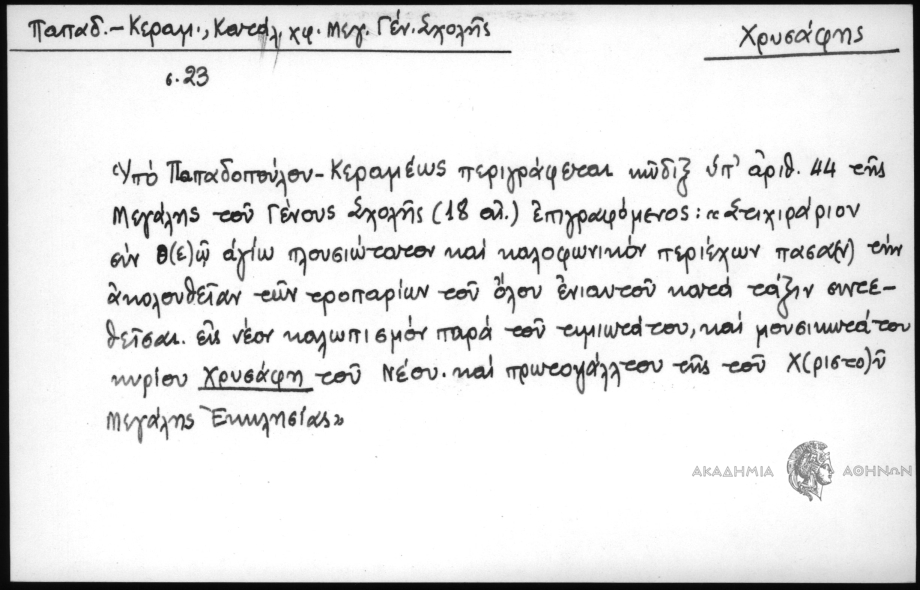 Παπαδ.-Κεραμ., Κατάλ. χφ. Μεγ. Γέν. Σχολῆς
Χρυσάφης
σ. 23
Ὑπὸ Παπαδοπούλου-Κεραμέως περιγράφεται κῶδιξ ὑπ' ἀριθ. 44 τῆς
Μεγάλης τοῦ Γένους Σχολῆς (18 αἰ.) ἐπιγραφόμενος: «Στιχιράριον
σὺν θ(ε)ῷ ἁγίω πλουσιώτατον καὶ καλοφωνικὸν περιέχων πασα(ν) τὴν
ἀκολουθεῖαν τῶν τροπαρίων τοῦ ὅλου ἐνιαυτοῦ κατὰ τάξιν συντε-
θεῖσαι. εἰς νέον καλωπισμὸν παρὰ τοῦ τιμιωτάτου, καὶ μουσικωτάτου
κυρίου Χρυσάφη τοῦ Νέου. καὶ πρωτοψάλτου τῆς τοῦ Χ(ριστο)ῦ
Μεγάλης Ἐκκλησίας»
ΑΚΑΔΗΜΙΑ ΑΘΗΝΩΝ